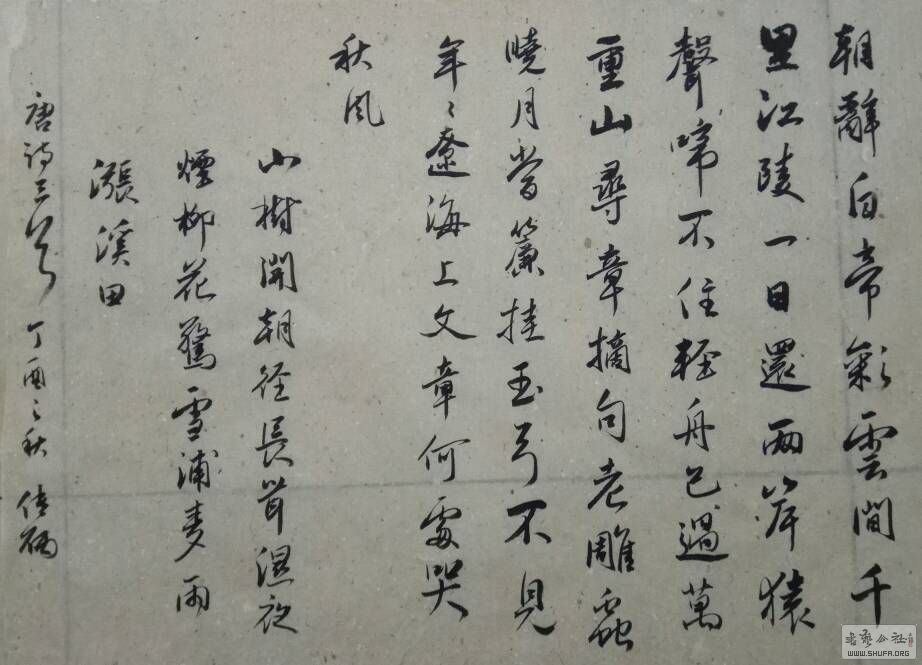 朝辭白帝彩雲間千
里江陵一日還兩岸猿
聲啼不住輕舟已過萬
重山尋章摘句老雕蟲
曉月當簾挂玉弓不見
年〻遼海上文章何處哭
秋風
小樹開朝徑長茸濕夜
煙柳花驚雪浦麥雨
漲溪田
唐詩三首 丁酉之秋
书艺公社
WWW.SHUFA.ORG